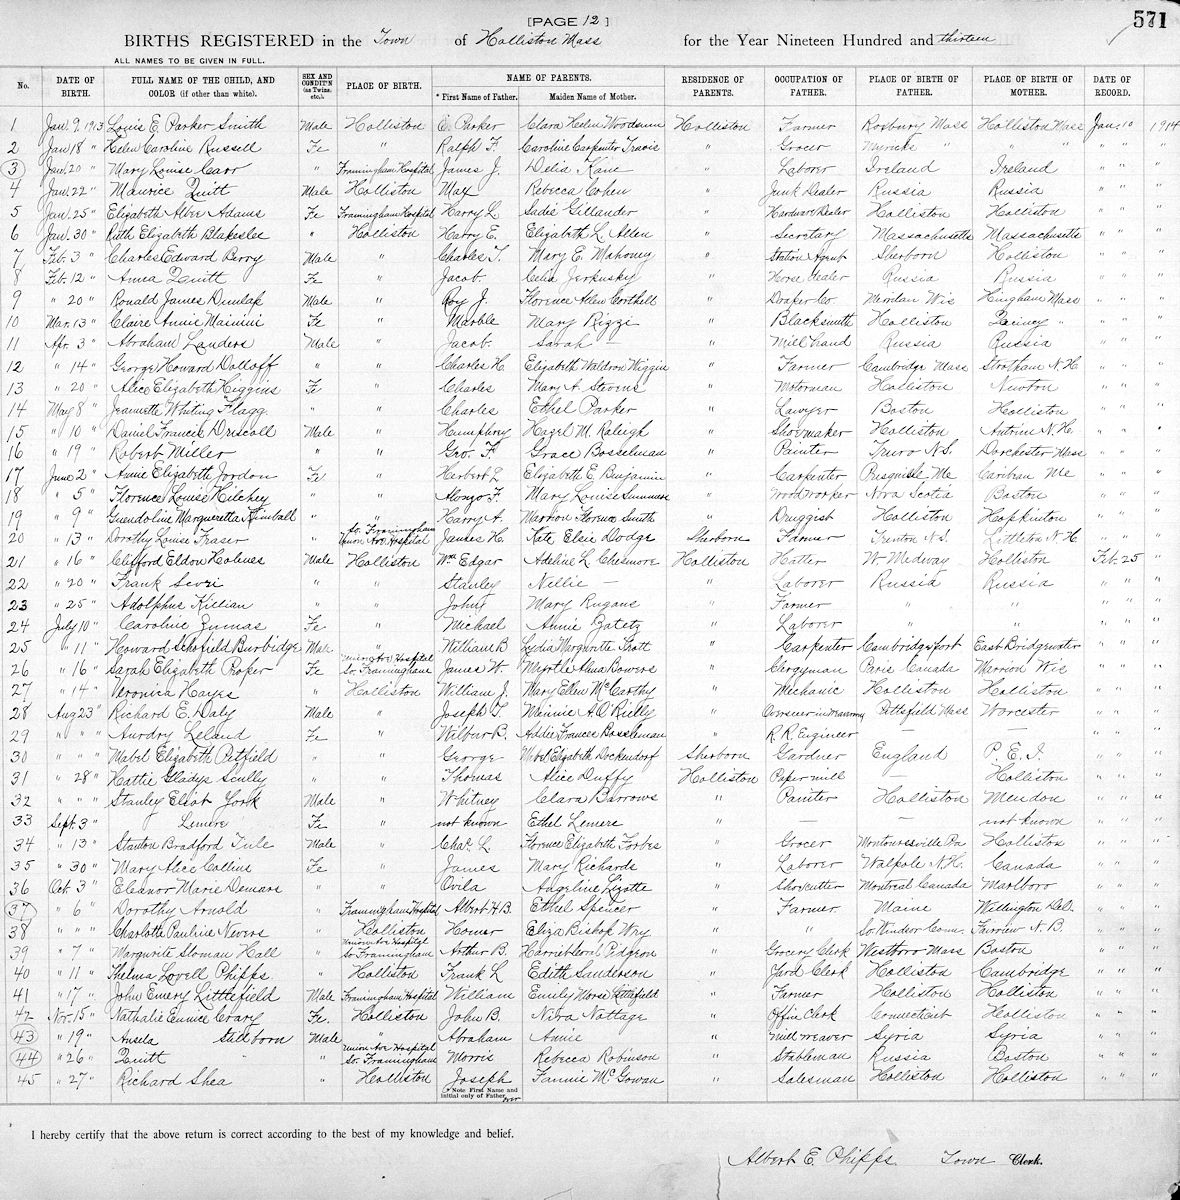 [PAGE 12]
571
BIRTHS REGISTERED in the Town of Holliston Mass for the Year Nineteen Hundred and thirteen
ALL NAMES TO BE GIVEN IN FULL.
No. DATE OF BIRTH. FULL NAME OF THE CHILD, AND COLOR (if other than white). SEX AND CONDIT'N (as Twins, etc.). PLACE OF BIRTH. NAME OF PARENTS. * First Name of Father. Maiden Name of Mother. RESIDENCE OF PARENTS. OCCUPATION OF FATHER. PLACE OF BIRTH OF FATHER. PLACE OF BIRTH OF MOTHER. DATE OF RECORD.
1 Jan. 9. 1913 Louis E. Parker Smith Male Holliston E. Parker Clara Helen Woodsum Holliston Farmer Roxbury Mass Holliston Mass Jan. 10 1914
2 Jan 18 " Helen Caroline Russell Fe " Ralph F. Caroline Carpenter Travis " Grocer Merricks " " " " " "
3 Jan. 20 " Mary Louise Carr " Framingham Hospital James J. Delia Kane " Laborer Ireland Ireland " " "
4 Jan. 22 " Maurice Quitt Male Holliston Max Rebecca Cohen " Junk Dealer Russia Russia " " "
5 Jan. 25 " Elizabeth Alber Adams Fe Framingham Hospital Harry L. Sadie Gillander " Hardware Dealer Holliston Holliston " " "
6 Jan. 30 " Ruth Elizabeth Blakeslee " Holliston Harry E. Elizabeth L. Allen " Secretary Massachusetts Massachusetts " " "
7 Feb. 3 " Charles Edward Berry Male " Charles T. Mary E. Mahoney " Station Agent Sherborn Holliston " " "
8 Feb. 12 " Anna Quitt Fe " Jacob. Celia " Horse Dealer Russia Russia " " "
9 " 20 " Ronald James Dunlap Male " Roy J. Florence Allen Corthell " Draper Co Meridan Wis Hingham Mass " " "
10 Mar. 13 " Claire Annie Mainini Fe " Marble Mary Rizzi " Blacksmith Holliston Quincy " " " "
11 Apr. 3 " Abraham Landers Male " Jacob. Sarah — " Mill hand Russia Russia " " "
12 " 14 " George Howard Dolloff " " Charles H. Elizabeth Waldron Wiggin " Farmer Cambridge Mass Stratham N.H. " " "
13 " 20 " Alice Elizabeth Higgins Fe " Charles Mary A. Stevens " Motorman Holliston Newton " " "
14 May 8 " Jeannette Whiting Flagg. " " Charles Ethel Parker " Lawyer Boston Holliston " " "
15 " 10 " Daniel Francis Driscoll Male " Humphrey Hazel M. Raleigh " Shoemaker Holliston Antrim N.H. " " "
16 " 19 " Robert Miller " " Geo. F. Grace Bosselman " Painter Truro N.S. Dorchester Mass " " "
17 June 2 " Annie Elizabeth Jordon Fe " Herbert L. Elizabeth E. Benjamin " Carpenter Presquisle Me Caribou Me " " "
18 " 5 " Florence Louise Hilchey " " Alonzo F. Mary Louise " Wood worker Nova Scotia Boston " " "
19 " 9 " Guendoline Margueretta Kimball " " Harry A. Marrion Florence Smith " Druggist Holliston Hopkinton " " "
20 " 13 " Dorothy Louise Fraser " So. Framingham Union Ave Hospital James H. Kate Elsie Dodge Sherborn Farmer Trenton N.S. Littleton N.H " " "
21 " 16 " Clifford Eldon Holmes Male Holliston Wm Edgar Adeline L. Chesmore Holliston Hatter W. Medway Holliston Feb. 25 "
22 " 20 " Frank " " Stanley Nillie — " Laborer Russia Russia " " "
23 " 25 " Adolphus Killian " " John Mary Rugans " Farmer " " " " "
24 July 10 " Caroline Zumas Fe " Michael Annie Zatetz " Laborer " " " " "
25 " 11 " Howard Schofield Burbidge Male " William B Lydia Margurite Trott " Carpenter Cambridgeport East Bridgewater " " "
26 " 16 " Sarah Elizabeth Roper Fe Union Ave Hospital So. Framingham James W. Myrtle Alma Bowers " Clergyman Paris Canada Merron Wis " " "
27 " 14 " Veronica Hayes " Holliston William J. Mary Ellen McCarthy " Mechanic Holliston Holliston " " "
28 Aug 23 " Richard E. Daly Male " Joseph T. Minnie A. O'Rielly " Overseer in Pittsfield Mass Worcester " " "
29 " " " Aurdry Leland Fe " Wilbur P. Addie Frances Bosselman " R.R. Engineer — — " " "
30 " " " Mabel Elizabeth Petfield " " George Mabel Elizabeth Dockendorf Sherborn Gardner England P.E.I. " " "
31 " 28 " Hattie Gladys Scully " " Thomas Alice Duffy Holliston Paper mill — Holliston " " "
32 " " " Stanley Eliot York Male " Whitney Clara Barrows " Painter Holliston Mendon " " "
33 Sept. 3 " Lemere Fe " not known Ethel Lemere " — — not known " " "
34 " 13 " Stanton Bradford Tule Male " Chas. L. Florence Elizabeth Forbes " Grocer Montoursville Pa Holliston " " "
35 " 30 " Mary Alice Collins Fe " James Mary Richards " Laborer Walpole N.H. Canada " " "
36 Oct. 3 " Eleanor Marie Demars " " Ovila Angeline Lizotte " Shoecutter Montreal Canada Marlboro " " "
37 " 6 " Dorothy Arnold " Framingham Hospital Albert H.B. Ethel Spencer " Farmer Maine Wellington Del. " " "
38 " " " Charlotte Pauline Nevers " Holliston Homer Eliza Bishop Wry " " So. Windsor Conn. Fairview N.B. " " "
39 " 7 " Margurite Sloman Hall " Union Ave Hospital So. Framingham Arthur B. Pidgeon " Grocery Clerk Westboro Mass Boston " " "
40 " 11 " Thelma Lovell Phipps " Holliston Frank L Edith Sanderson " Yard Clerk Holliston Cambridge " " "
41 " 17 " John Emery Littlefield Male Framingham Hospital William Emily Morse Littlefield " Farmer Holliston Holliston " " "
42 Nov. 15 " Nathalie Eunice Crary Fe. Holliston John B. Nina Nottage " Office Clerk Connecticut Holliston " " "
43 " 19 " Ansela Stillborn Male " Abraham Annie " mill weaver Syria Syria " " "
44 " 26 " Quitt " " Union Ave Hospital So. Framingham Morris Rebecca Robinson " Stableman Russia Boston " " "
45 " 27 " Richard Shea " Holliston Joseph Fannie McGowan " Salesman Holliston Holliston " " "
(* Note First Name and initial only of Father. over
I hereby certify that the above return is correct according to the best of my knowledge and belief.
Albert E. Phipps. Town Clerk.